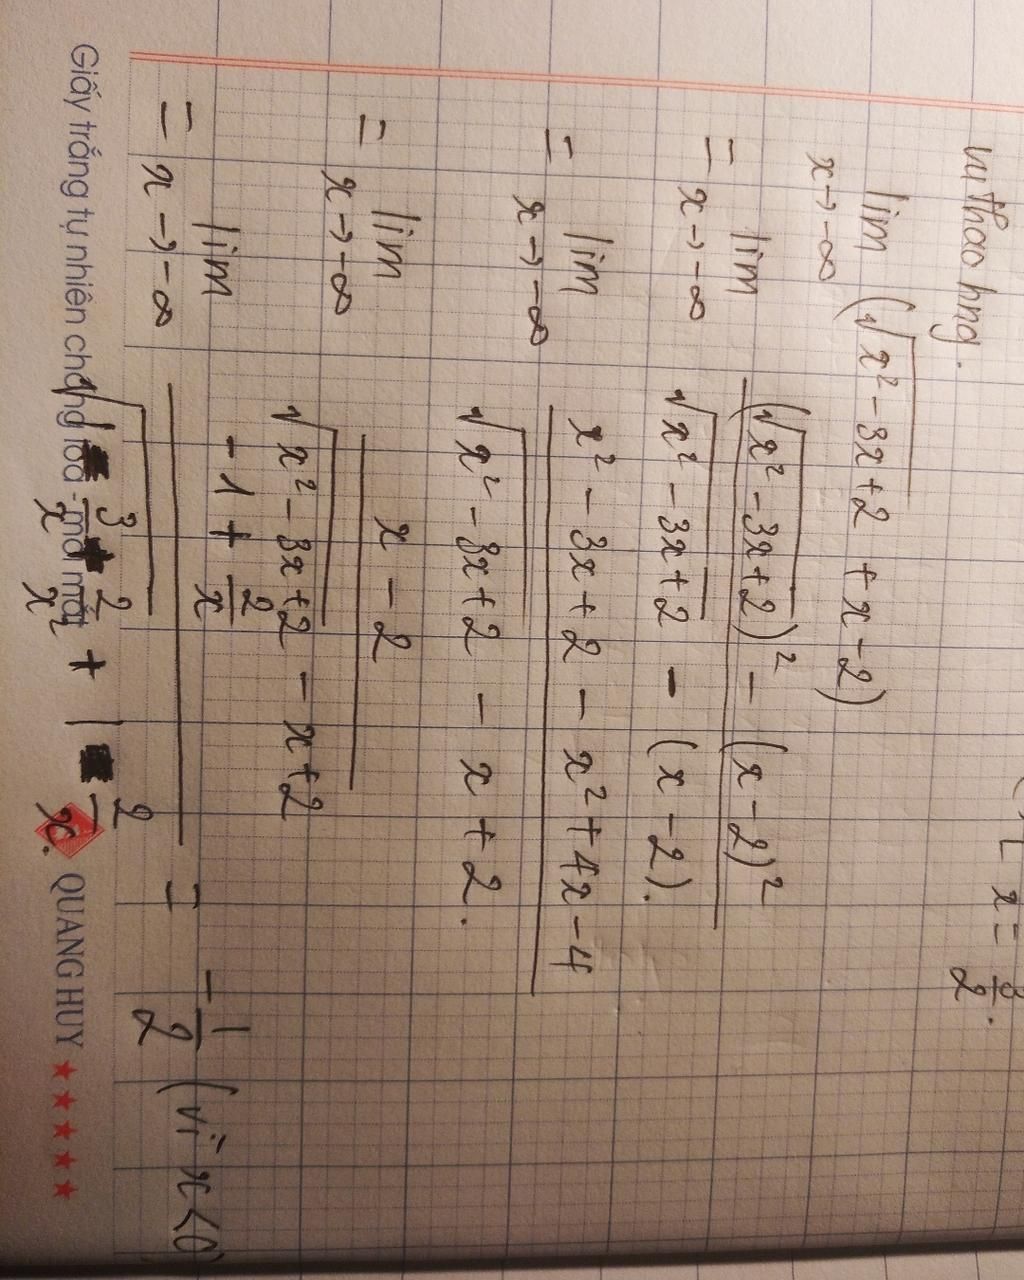 x = 3/2.
lim x→-∞ (√(x² - 3x + 2) + x - 2)
= lim x→-∞ ((√(x² - 3x + 2))² - (x - 2)²) / (√(x² - 3x + 2) - (x - 2)).
= lim x→-∞ (x² - 3x + 2 - x² + 4x - 4) / (√(x² - 3x + 2) - x + 2).
= lim x→-∞ (x - 2) / (√(x² - 3x + 2) - x + 2)
= lim x→-∞ (-1 + 2/x) / (√(1 - 3/x + 2/x²) + 1 - 2/x) = -1/2 (vì x < 0)
Giấy trắng tự nhiên chống lóa - mỏi mắt QUANG HUY